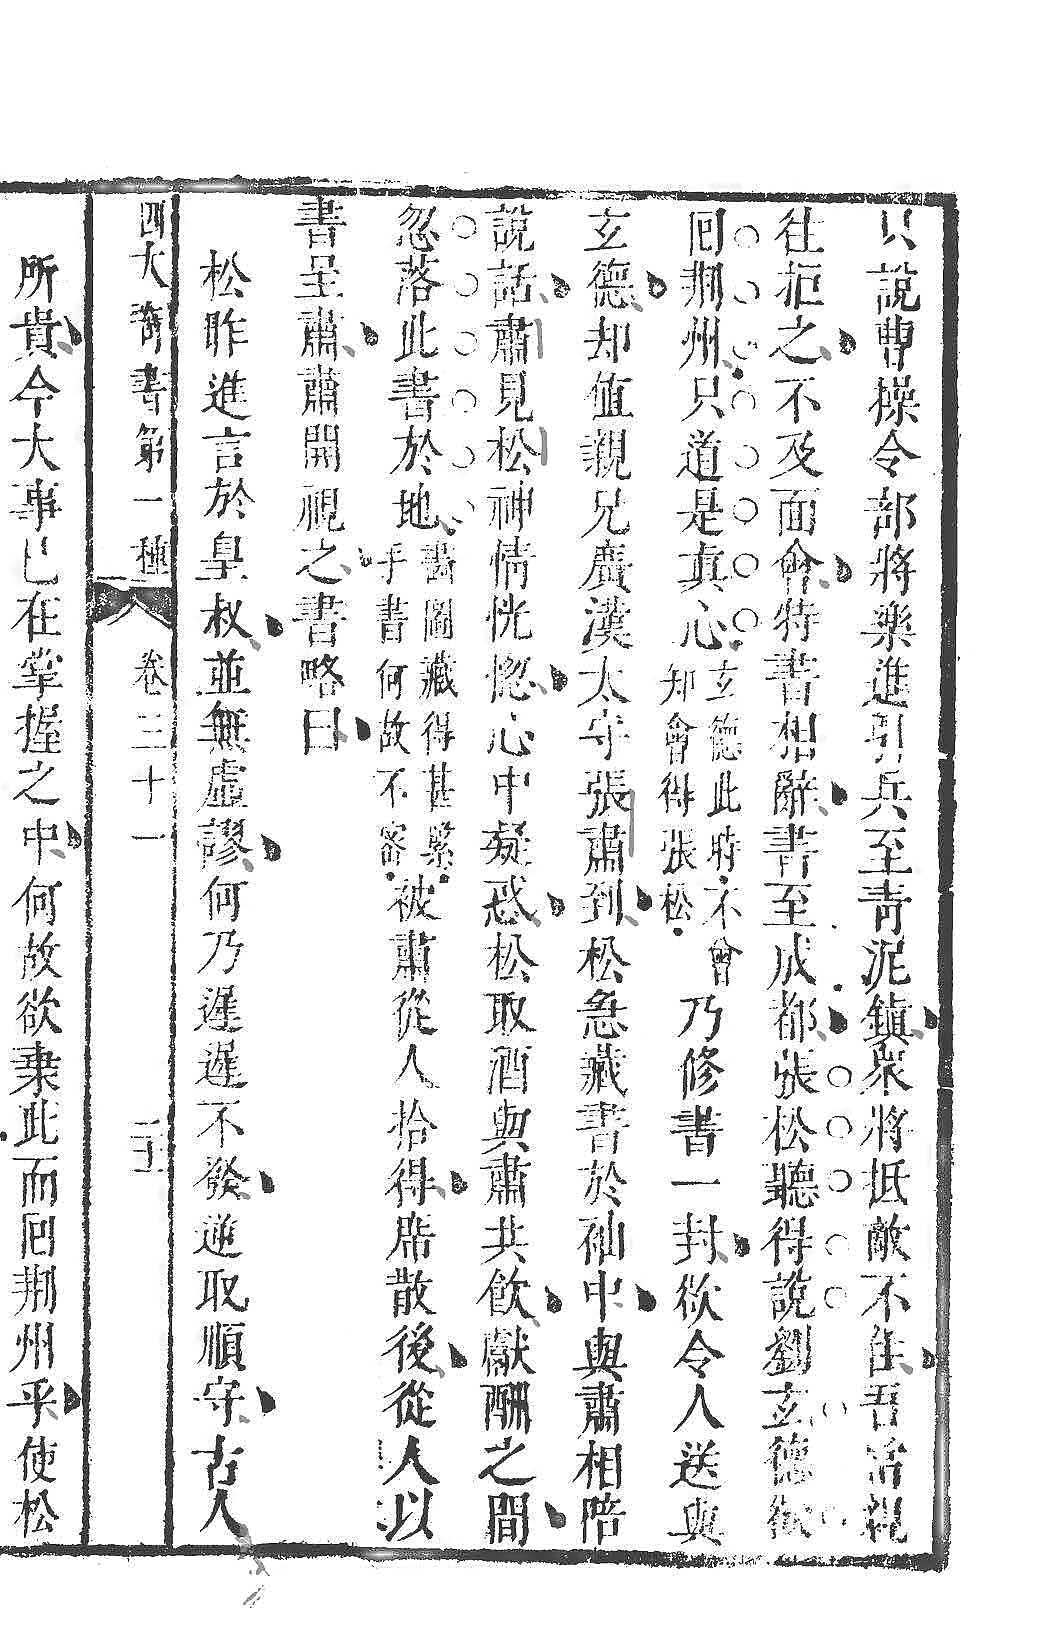 只說曹操令部將樂進引兵至青泥鎮衆將抵敵不住吾當親
往拒之不及面會特書相辭書至成都張松聽得說劉玄德欲
回荆州只道是真心玄德此時不會知會得張松乃修書一封欲令人送與
玄德却值親兄廣漢太守張肅到松急藏書於袖中與肅相陪
說話肅見松神情恍惚心中疑惑松取酒與肅共飲獻酬之間
忽落此書於地畫圖藏得甚緊手書何故不密被肅從人拾得席散後從人以
書呈肅肅開視之書略曰
松昨進言於皇叔並無虛謬何乃遲遲不發逆取順守古人
四大奇書第一種 卷三十一
所貴今大事已在掌握之中何故欲棄此而回荆州乎使松